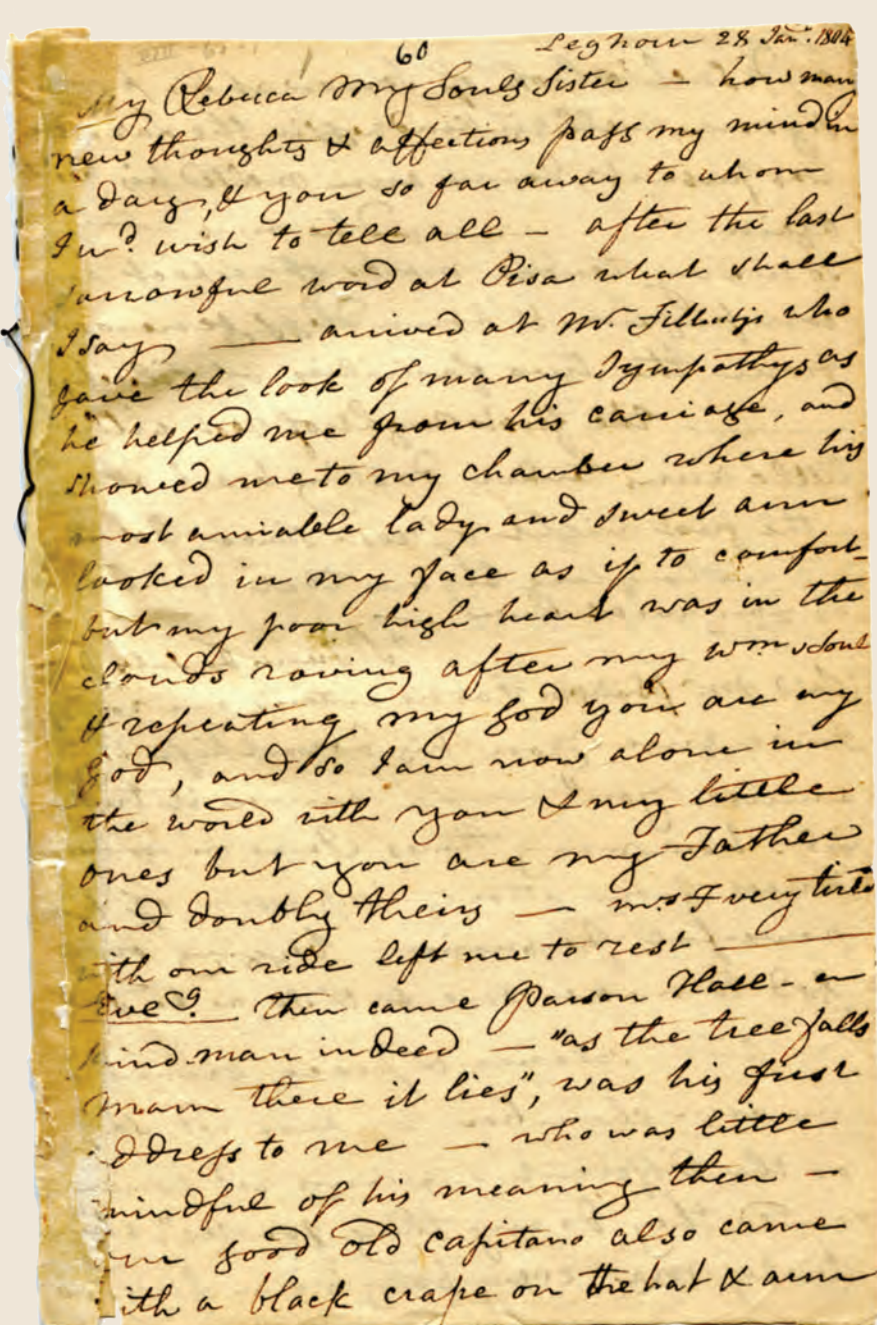 60
Leghorn 28 Jan. 1804
My Rebecca My Souls Sister — how man
new thoughts & affections pass my mind in
a day, & you so far away to whom
I wd. wish to tell all — after the last
sorrowful word at Pisa what shall
I say — arrived at Mr. Fillichys who
gave the look of many Sympathys as
he helped me from his carriage, and
showed me to my chamber where his
most amiable lady and sweet ann
looked in my face as if to comfort
but my poor high heart was in the
clouds roving after my Wms soul
& repeating my god you are my
God, and so I am now alone in
the world with you & my little
ones but you are my Father
and doubly theirs — mrs F very tired
with our ride left me to rest —
Eveg. then came Parson Hall - a
kind man indeed — "as the tree falls
Mam there it lies", was his first
address to me — who was little
mindful of his meaning then —
our good old capitano also came
with a black crape on the hat & arm